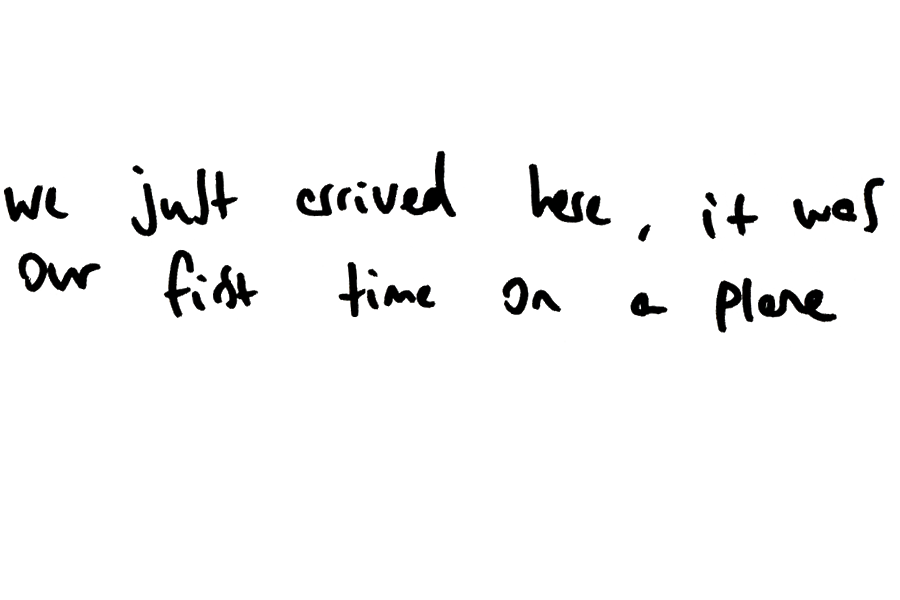 we just arrived here, it was
our first time on a plane